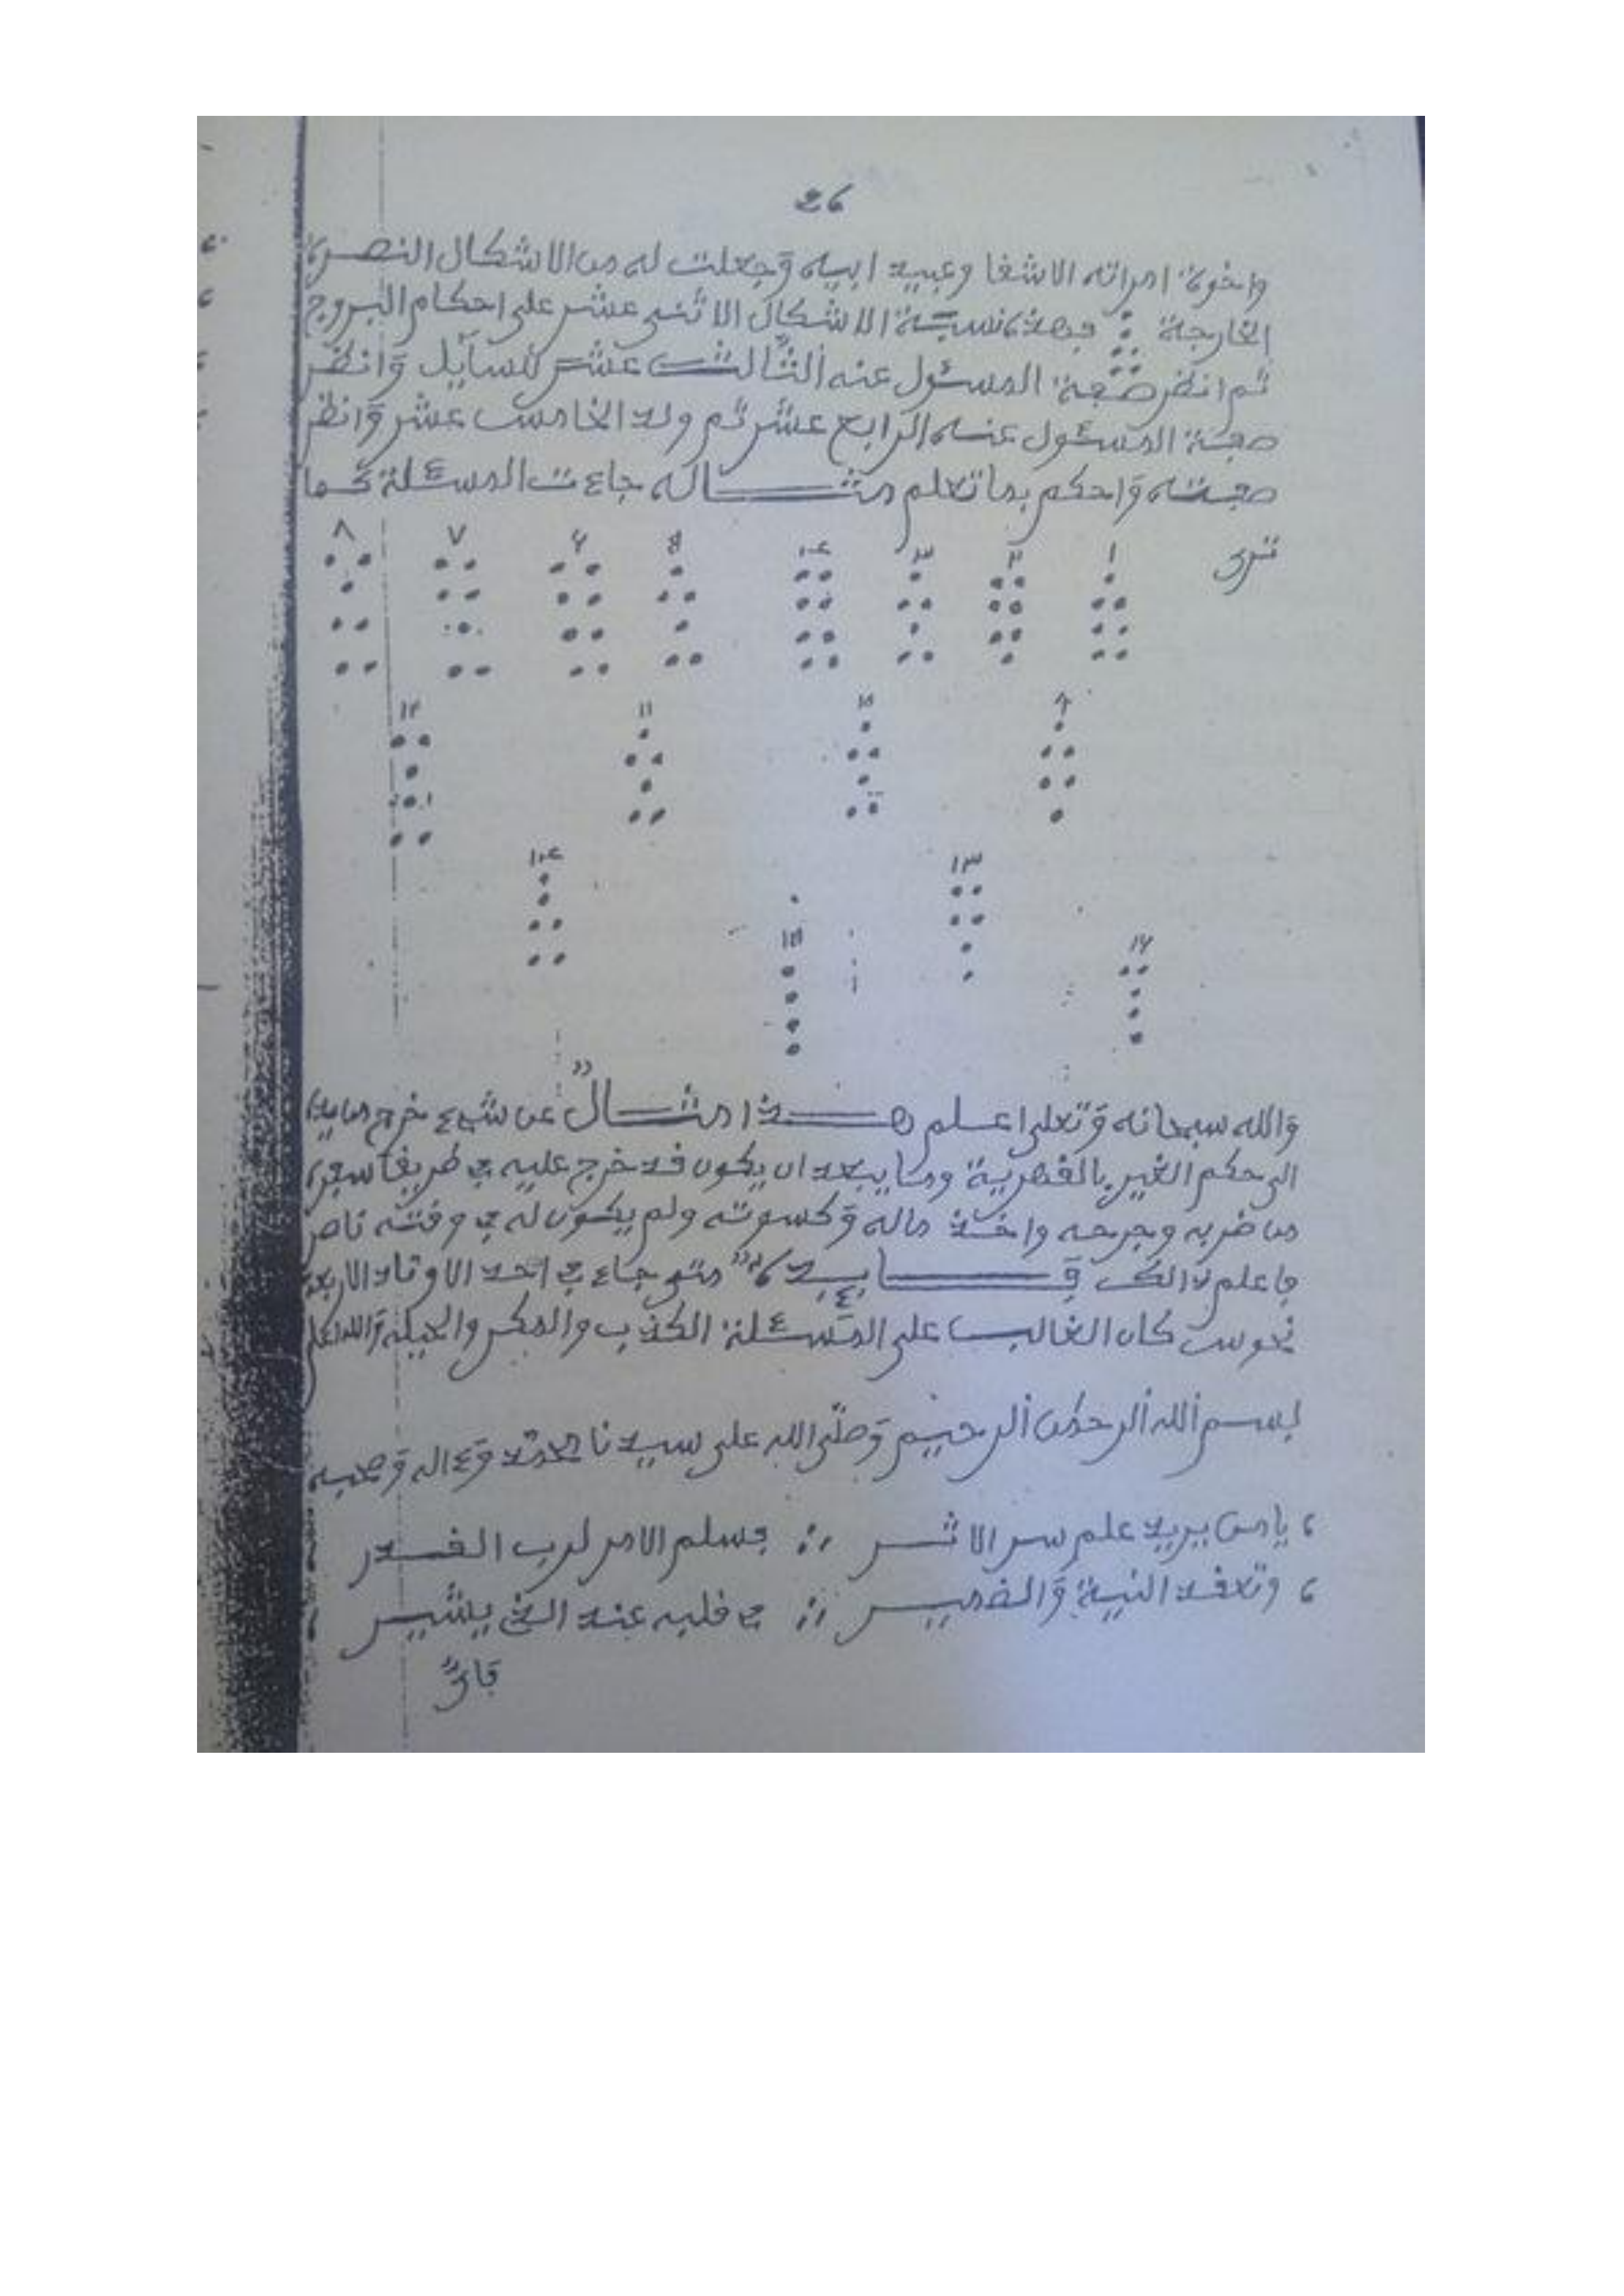 26
واخوة امراته الاشفا وعبيد ابيه وجعلت له من الاشكال النصرة
الخارجة فهذه نسبة الاشكال الاثنى عشر على احكام البروج
ثم انظر صفة المسئول عنه الثالث عشر للسايل وانظر
صفة المسئول عنه الرابع عشر ثم ولد الخامس عشر وانظر
صفته واحكم بما تعلم مثاله جاءت المسئلة كما
ترى
١ ٢ ٣ ٤ ٥ ٦ ٧ ٨
٩ ١٠ ١١ ١٢
١٣ ١٤
١٥ ١٦
والله سبحانه وتعلى اعلم هذا مثال عن شيء خرج من يده
الى حكم الغير بالقهرية وما يبعد ان يكون قد خرج عليه في طريق
من ضربه وجرحه واخذ ماله وكسوته ولم يكون له في وقته ناصر
فاعلم ذالك متى جاء في احد الاوتاد الاربعة
نحوس كان الغالب على المسئلة الكذب والمكر والحيلة
بسم الله الرحمن الرحيم وصلى الله على سيدنا محمد وءاله وصحبه
يا من يريد علم سر الاثر فسلم الامر لرب القدر
وتعقد النية والضمير في قلبه عند الذي يشير